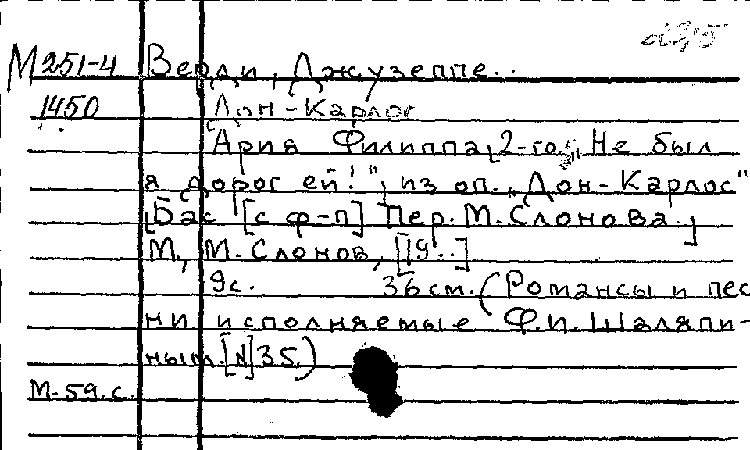 235
М251-4 Верди, Джузеппе.
1450 Дон-Карлос
Ария Филиппа [2-го] „Не был
я дорог ей!", из оп. „Дон-Карлос"
[Бас [с ф-п] Пер. М. Слонова.]
М, М. Слонов, [19..]
9с. 36 см. (Романсы и пес
ни исполняемые Ф.И. Шаляпи-
ным. [№]35)
М-59.с.